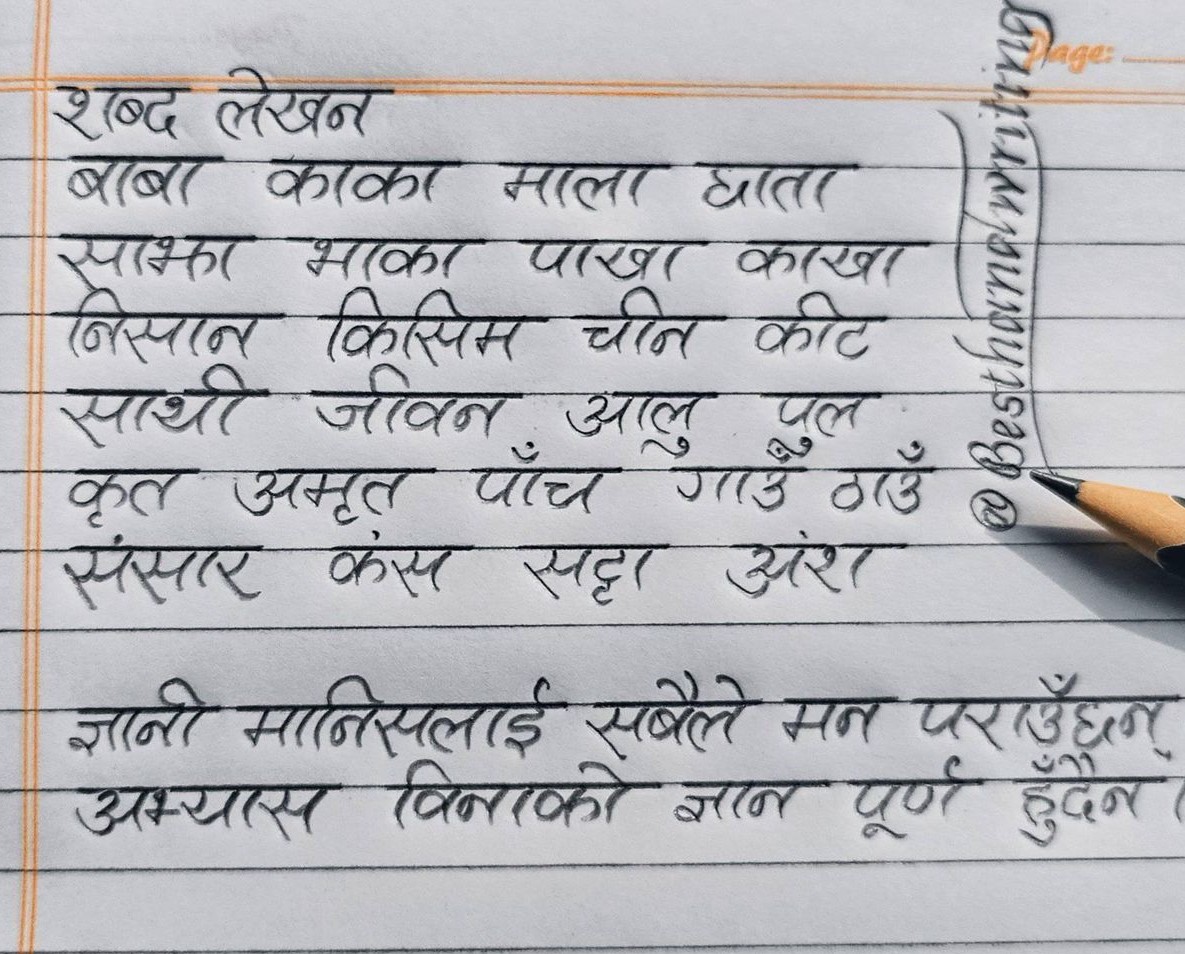 Page:
शब्द लेखन
बाबा काका माला छाता
साझा भाका पाखा काखा
निसान किसिम चीन कीट
साथी जीवन आलु पुल
कृत अमृत पाँच गाउँ ठाउँ
संसार कंस सट्टा अंश
ज्ञानी मानिसलाई सबैले मन पराउँछन्
अभ्यास विनाको ज्ञान पूर्ण हुँदैन ।